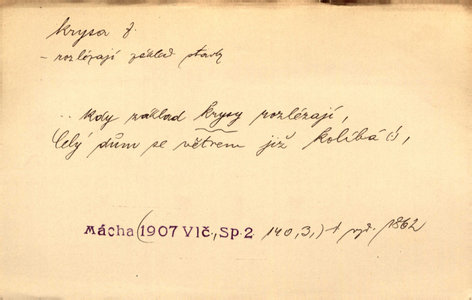 krysa f.
– rozlézají základ stavby
.. kdy základ krysy rozlézají,
Celý dům se větrem již kolíbá
Mácha (1907 Vlč., Sp. 2 140,3,) + vyd. 1862